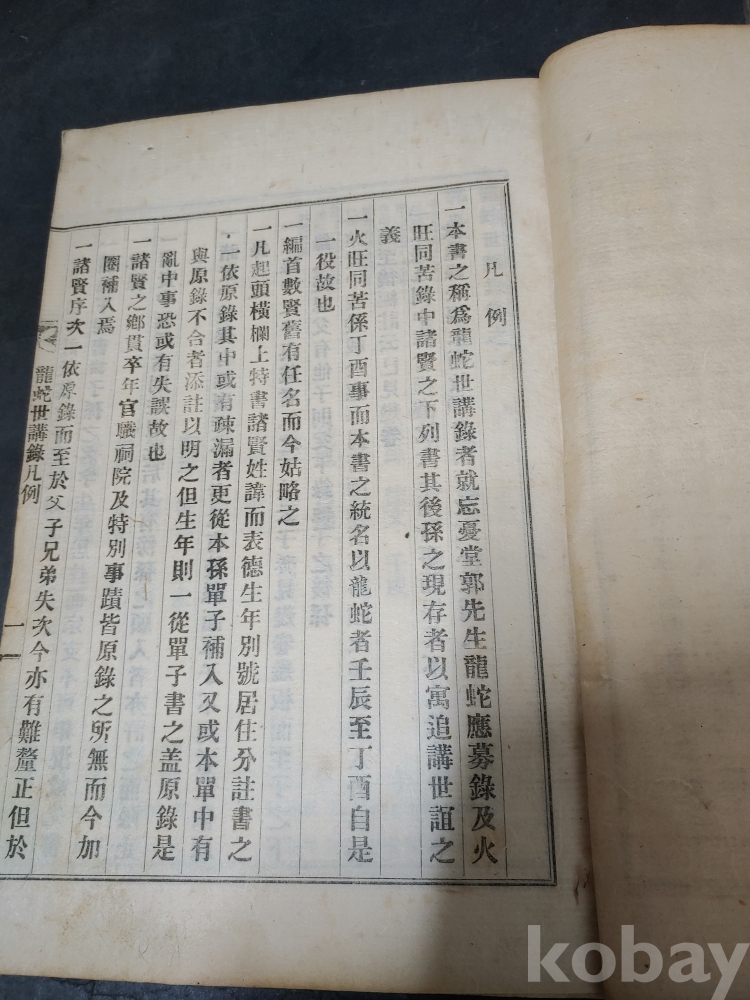 凡例
一本書之稱爲龍蛇世講錄者就忘憂堂郭先生龍蛇應募錄及火
旺同苦錄中諸賢之下列書其後孫之現存者以寓追講世誼之
義
一火旺同苦係丁酉事而本書之統名以龍蛇者壬辰至丁酉自是
一役故也
一編首數賢舊有任名而今姑略之
一凡起頭橫欄上特書諸賢姓諱而表德生年別號居住分註書之
一依原錄其中或有疎漏者更從本孫單子補入又或本單中有
與原錄不合者添註以明之但生年則一從單子書之盖原錄是
亂中事恐或有失誤故也
一諸賢之鄕貫卒年官職祠院及特別事蹟皆原錄之所無而今加
圈補入焉
一諸賢序次一依原錄而至於父子兄弟失次今亦有難釐正但於
龍蛇世講錄凡例
一
kobay